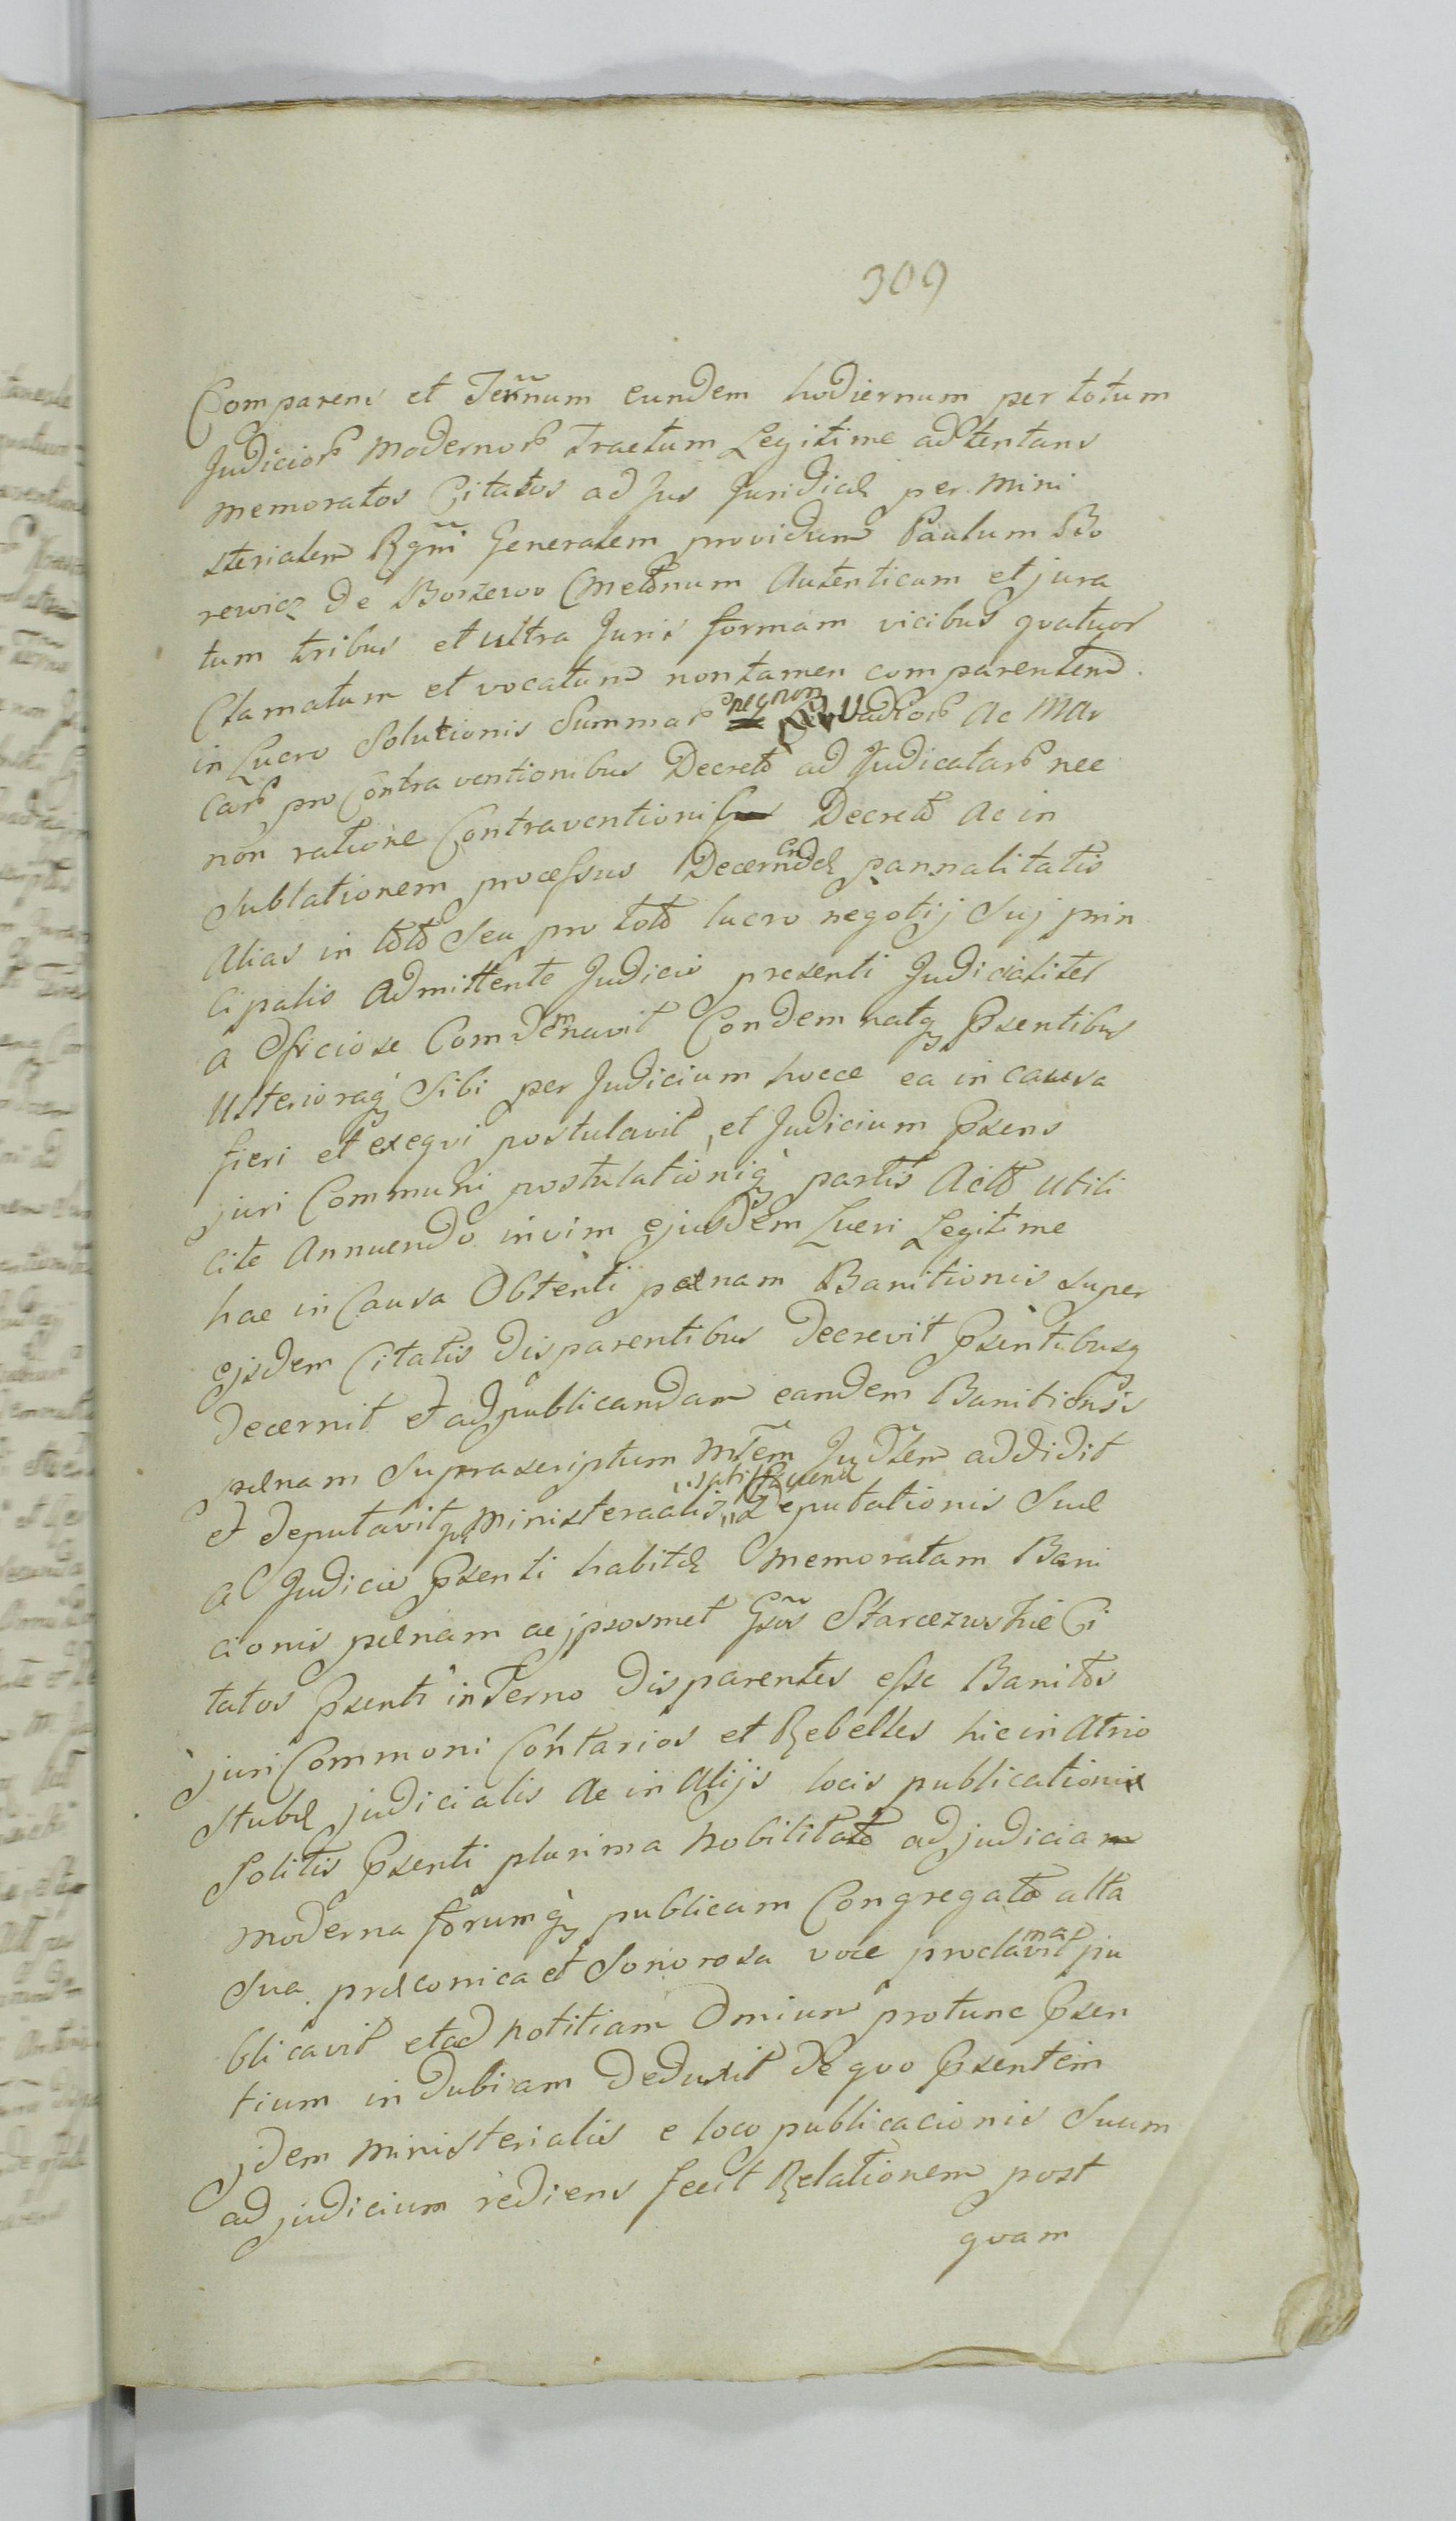 309
Comparens et Ternum eundem hodiernum per totum
Judicior modernor Tractum Legitime adtentans
memoratos Citatos ad Jus Juridicé per mini
sterialem Rgni Generalem providum Paulum Bo
rewicz de Borzewo Cmetonum Autenticum et jura
tum tribus et ultra Juris formam vicibus qvatuor
Clamatum et vocatum non tamen comparentem
in Lucro Solutionis Summar Ac Mar
car pro Contraventionibus Decreto ad Judicatar nec
non ratione Contraventioni Decreto Ac in
Sublationem processus Decernendæ pannalitatis
Alias in toto Seu pro toto lucro negotij Suj prin
cipalis Admittente Judicio presenti Judicialiter
a Officiose Comdemnavit Condemnatq Psentibus
Ulterioraq Sibi per Judicium hocce ea in causa
fieri et exeqvi postulavit, et Judicium Psens
juri Communi postulationiq partis Acto Ubili
cite Annuendo in vim ejusdem Lucri Legitime
hac in Causa Obtenti pænam Banitionis super
ejsdem Citatis disparentibus decrevit Psentibusq
decernit et ad publicandam eandem Banitionis
pænam Suprascriptum Mlem Judlem addidit
et deputavit qui Ministeraalis satisfaciens deputationis Suæ
a Judicio Psenti habitæ memoratam Bani
cionis pænam ac jpsosmet Gsos Starczewskie Ci
tatos Psenti in Terno disparentes esse Banitos
juri Commoni Contarios et Rebelles hic in Atrio
Stubæ judicialis Ac in Alijs locis publicationis
Solitis Psenti plurima Nobilitate ad judicia
moderna forumq publicam Congregato alta
Sua præconica et Sonorosa voce proclamavit pu
blicavit et ad notitiam Omium protunc Psen
tium indubiam deduxit de qvo Psentem
jdem Ministerialis e loco publicacionis Suum
ad judicium rediens fecit Relationem post
qvam